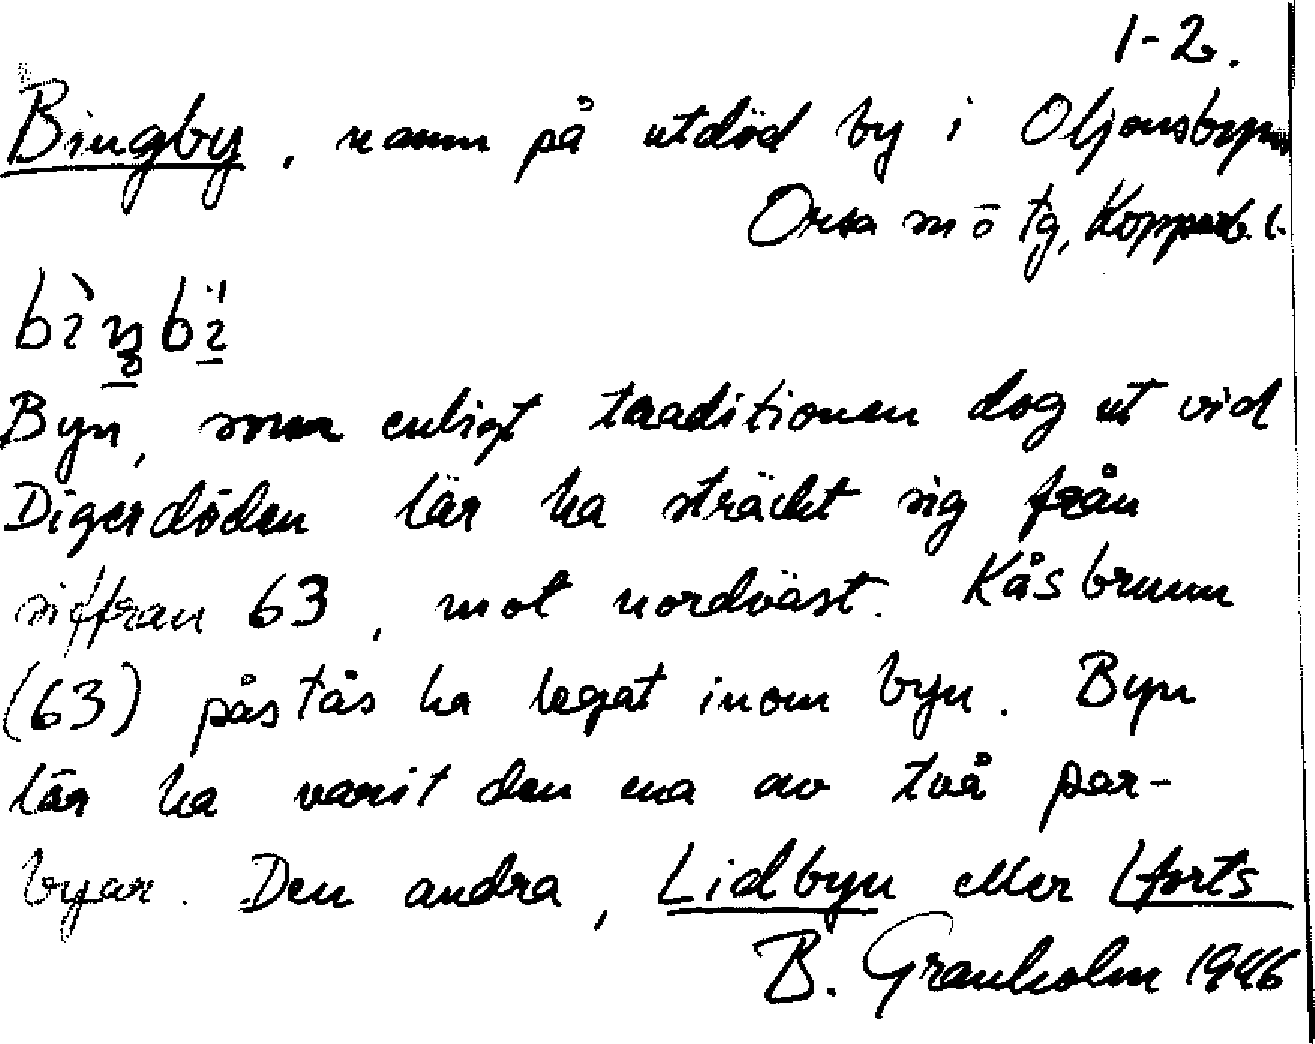 1-2.
Bingby, namn på utdöd by i Oljonsbyn
Orsa sn ö tg, Kopparb. l.
Byn, som enligt traditionen dog ut vid
Digerdöden lär ha sträckt sig från
siffran 63, mot nordväst. Kåsbrunn
(63) påstås ha legat inom byn. Byn
lär ha varit den ena av två par-
byar. Den andra, Lidbyn eller (forts
B. Granholm 1946